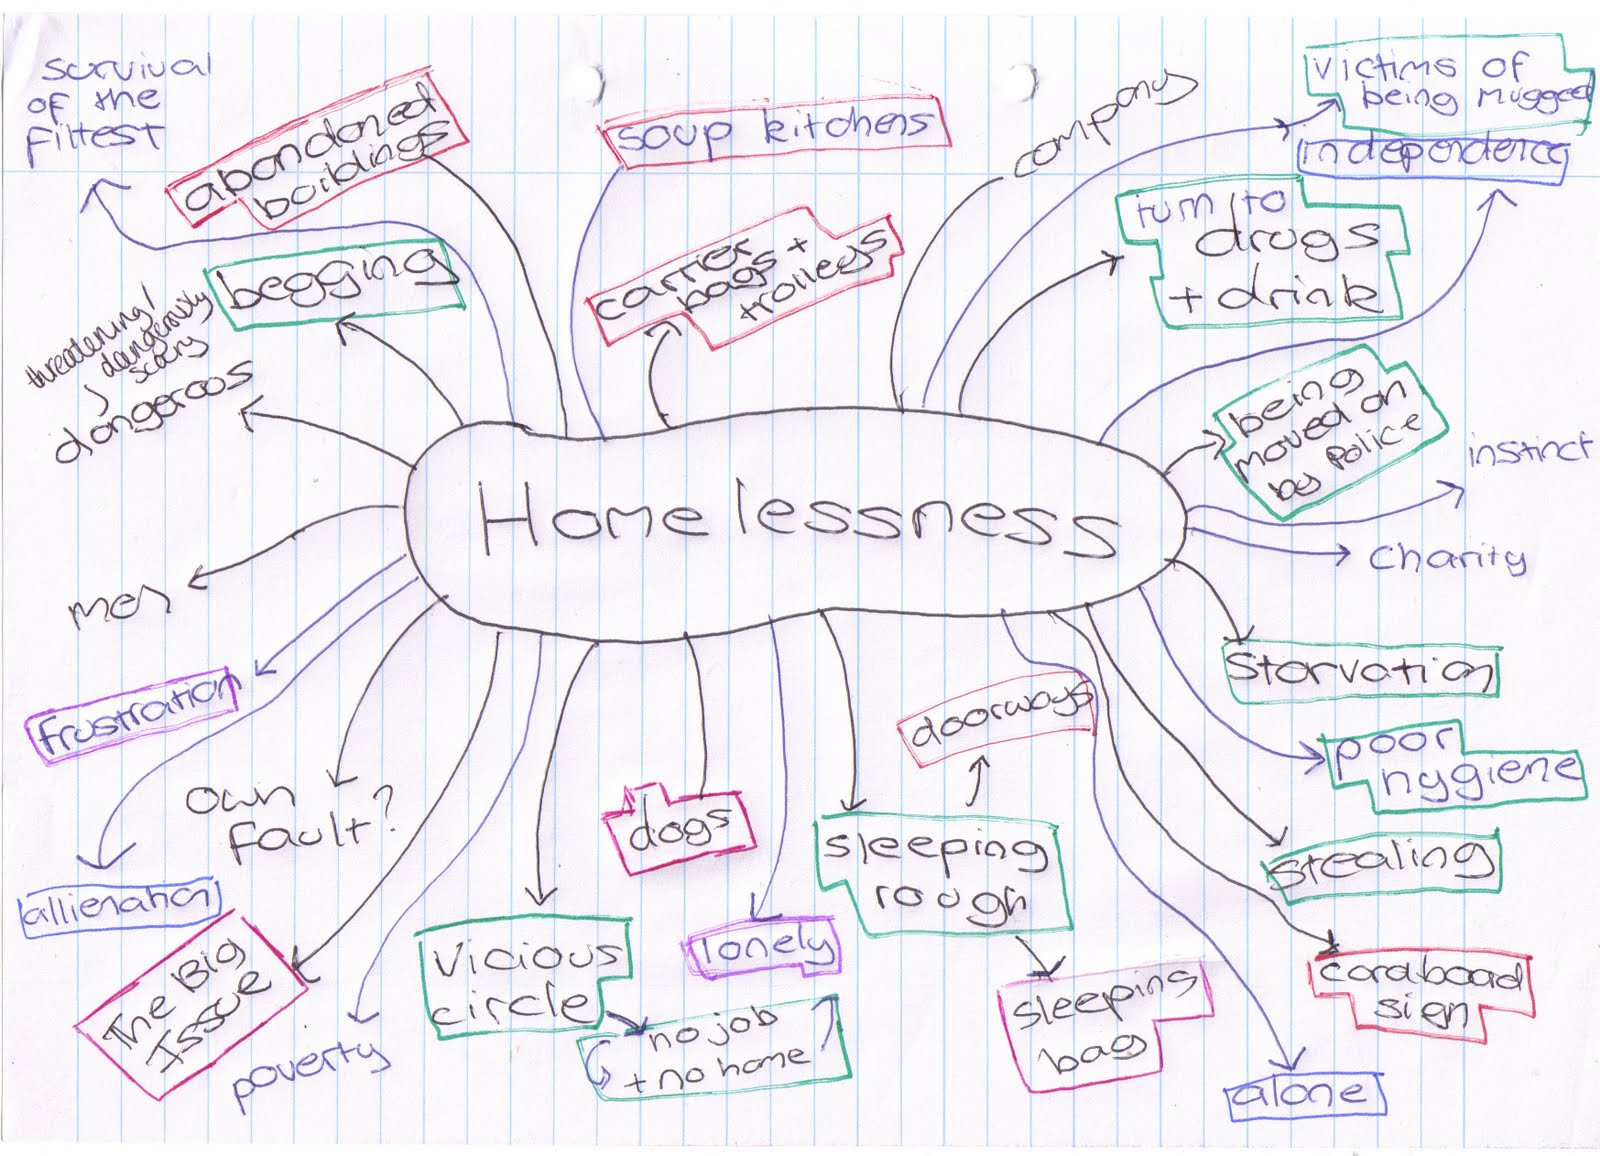 survival
of the
fittest
abandoned
buildings
soup kitchens
company
victims of
being mugged
independence
turn to
drugs
+ drink
carrier
bags +
trolleys
begging
threatening /
dangerously
scary
dangerous
being
moved on
by police
instinct
Homelessness
charity
men
starvation
frustration
poor
hygiene
doorways
own
fault?
dogs
sleeping
rough
stealing
allienation
vicious
circle
lonely
The Big
Issue
sleeping
bag
cardboard
sign
no job
+ no home
poverty
alone